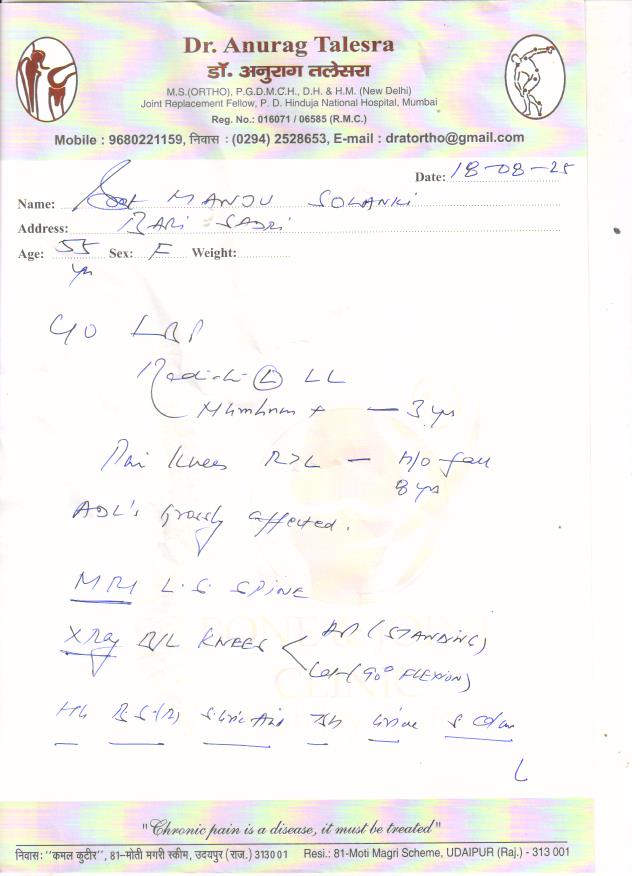 Dr. Anurag Talesra
डॉ. अनुराग तलेसरा
M.S.(ORTHO), P.G.D.M.C.H., D.H. & H.M. (New Delhi)
Joint Replacement Fellow, P. D. Hinduja National Hospital, Mumbai
Reg. No.: 016071 / 06585 (R.M.C.)
Mobile : 9680221159, निवास : (0294) 2528653, E-mail : dratortho@gmail.com
Date: 18-08-25
Name: MANJU SOLANKI
Address: BARI SADRI
Age: 55 yrs Sex: F Weight:
C/O LBP
(L) LL
Numbness + — 3 yrs
Pain Knees R>L — H/O fall
8 yrs
ADL's grossly affected.
MRI L.S SPINE
X Ray B/L KNEES AP (STANDING)
Lat (90° FLEXION)
Hb B.S.(R) S. Uric Acid Urine
BONE & JOINT
CLINIC
"Chronic pain is a disease, it must be treated"
निवास: "कमल कुटीर", 81-मोती मगरी स्कीम, उदयपुर (राज.) 313001 Resi.: 81-Moti Magri Scheme, UDAIPUR (Raj.) - 313 001